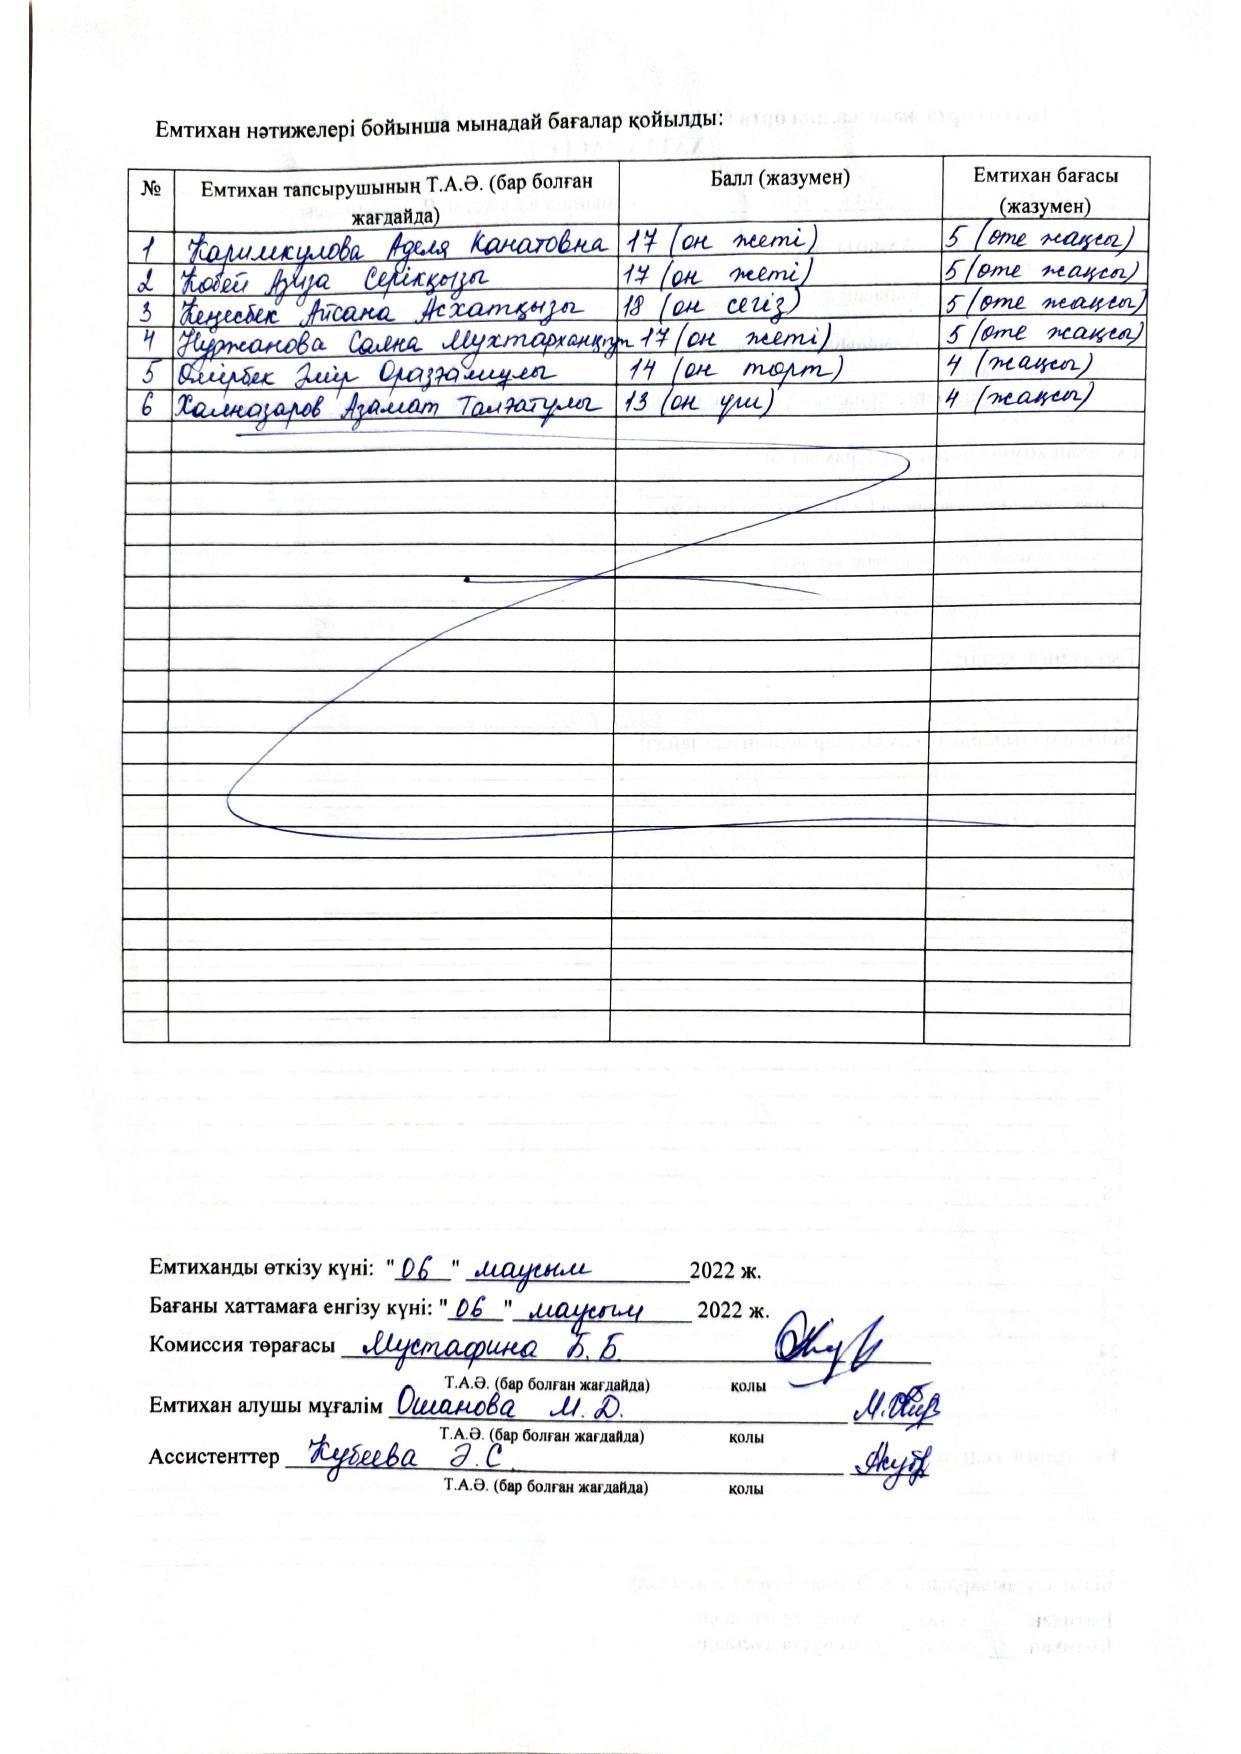 Емтихан нәтижелері бойынша мынадай бағалар қойылды:
№ Емтихан тапсырушының Т.А.Ә. (бар болған жағдайда) Балл (жазумен) Емтихан бағасы (жазумен)
1 Каримкулова Аделя Канатовна 17 (он жеті) 5 (өте жақсы)
2 Кобей Азиза Серікқызы 17 (он жеті) 5 (өте жақсы)
3 Кеңесбек Айсана Асхатқызы 18 (он сегіз) 5 (өте жақсы)
4 Нуржанова Саяна Мухтарханқызы 17 (он жеті) 5 (өте жақсы)
5 Өмірбек Әмір Оразғалиұлы 14 (он төрт) 4 (жақсы)
6 Халназаров Азамат Талғатулы 13 (он үш) 4 (жақсы)
Емтиханды өткізу күні: "06" маусым 2022 ж.
Бағаны хаттамаға енгізу күні: "06" маусым 2022 ж.
Комиссия төрағасы Мустафина Б.Б.
Т.А.Ә. (бар болған жағдайда) қолы
Емтихан алушы мұғалім Ошанова М.Д.
Т.А.Ә. (бар болған жағдайда) қолы
Ассистенттер Кубеева Ә.С.
Т.А.Ә. (бар болған жағдайда) қолы